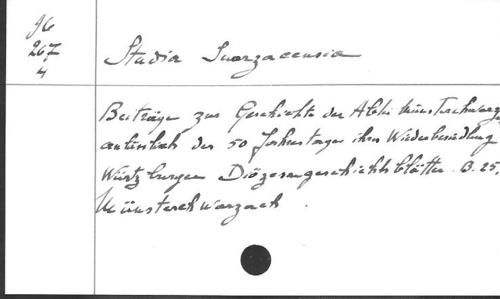 96
267
4
Studia Suarzacensia
Beiträge zur Geschichte der Abtei Münsterschwarz
anlässlich des 50 Jahrestages ihrer Wiederbesiedlung
Würzburger Diözesangeschichtsblätter B. 25,
Münsterschwarzach